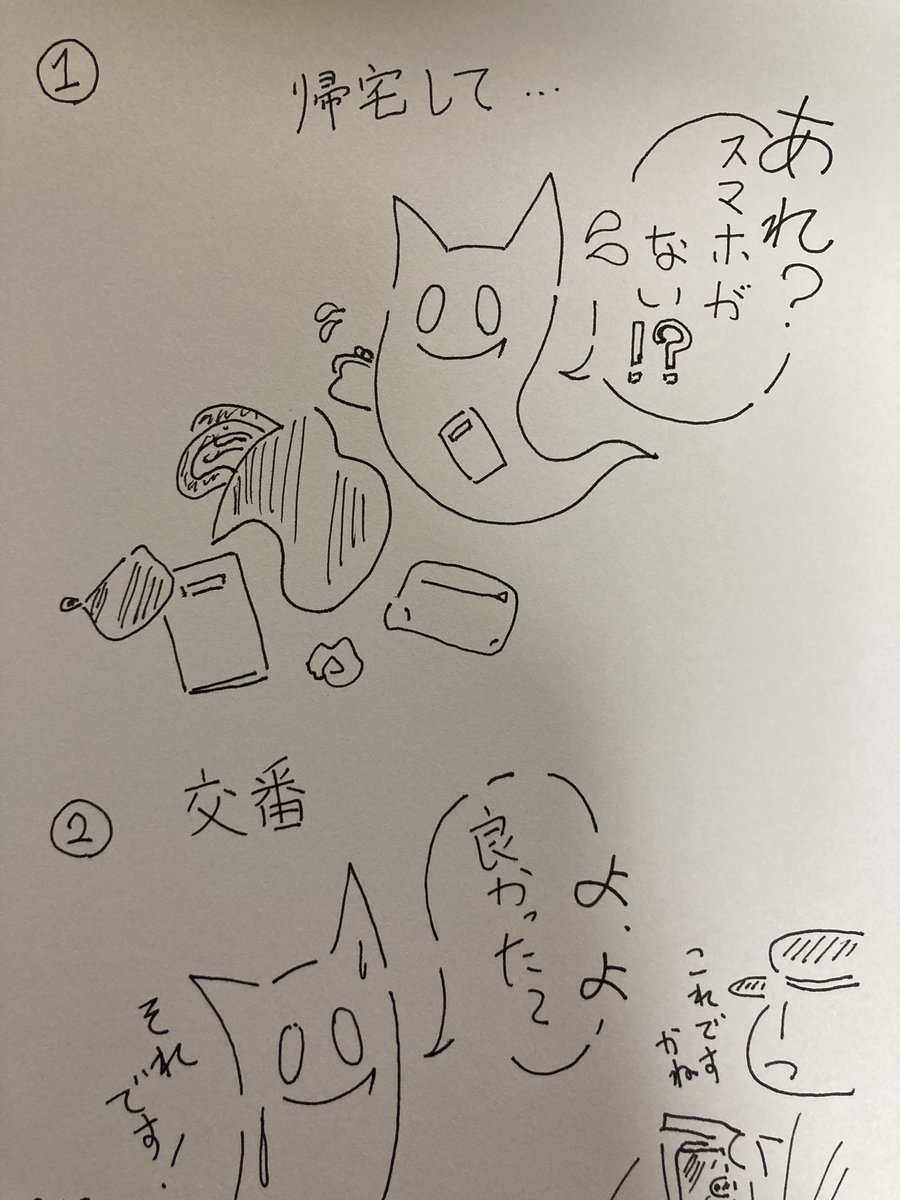 ①
帰宅して…
あれ？
スマホが
ない!?
②
交番
よ、よ
良かったて
これです
かね
それ
です！